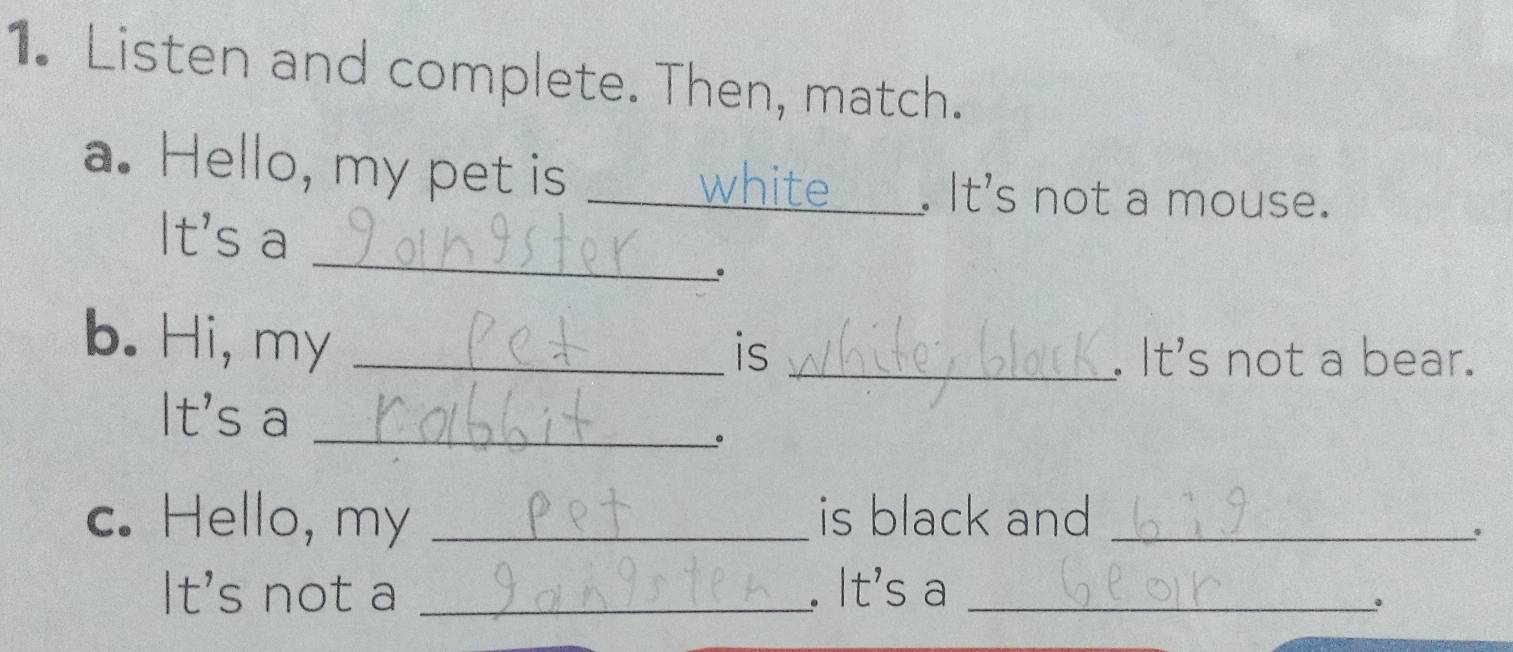 1. Listen and complete. Then, match.
a. Hello, my pet is white. It's not a mouse.
It's a gangster.
b. Hi, my pet is white, black. It's not a bear.
It's a rabbit.
c. Hello, my pet is black and big.
It's not a gangsten. It's a bear.